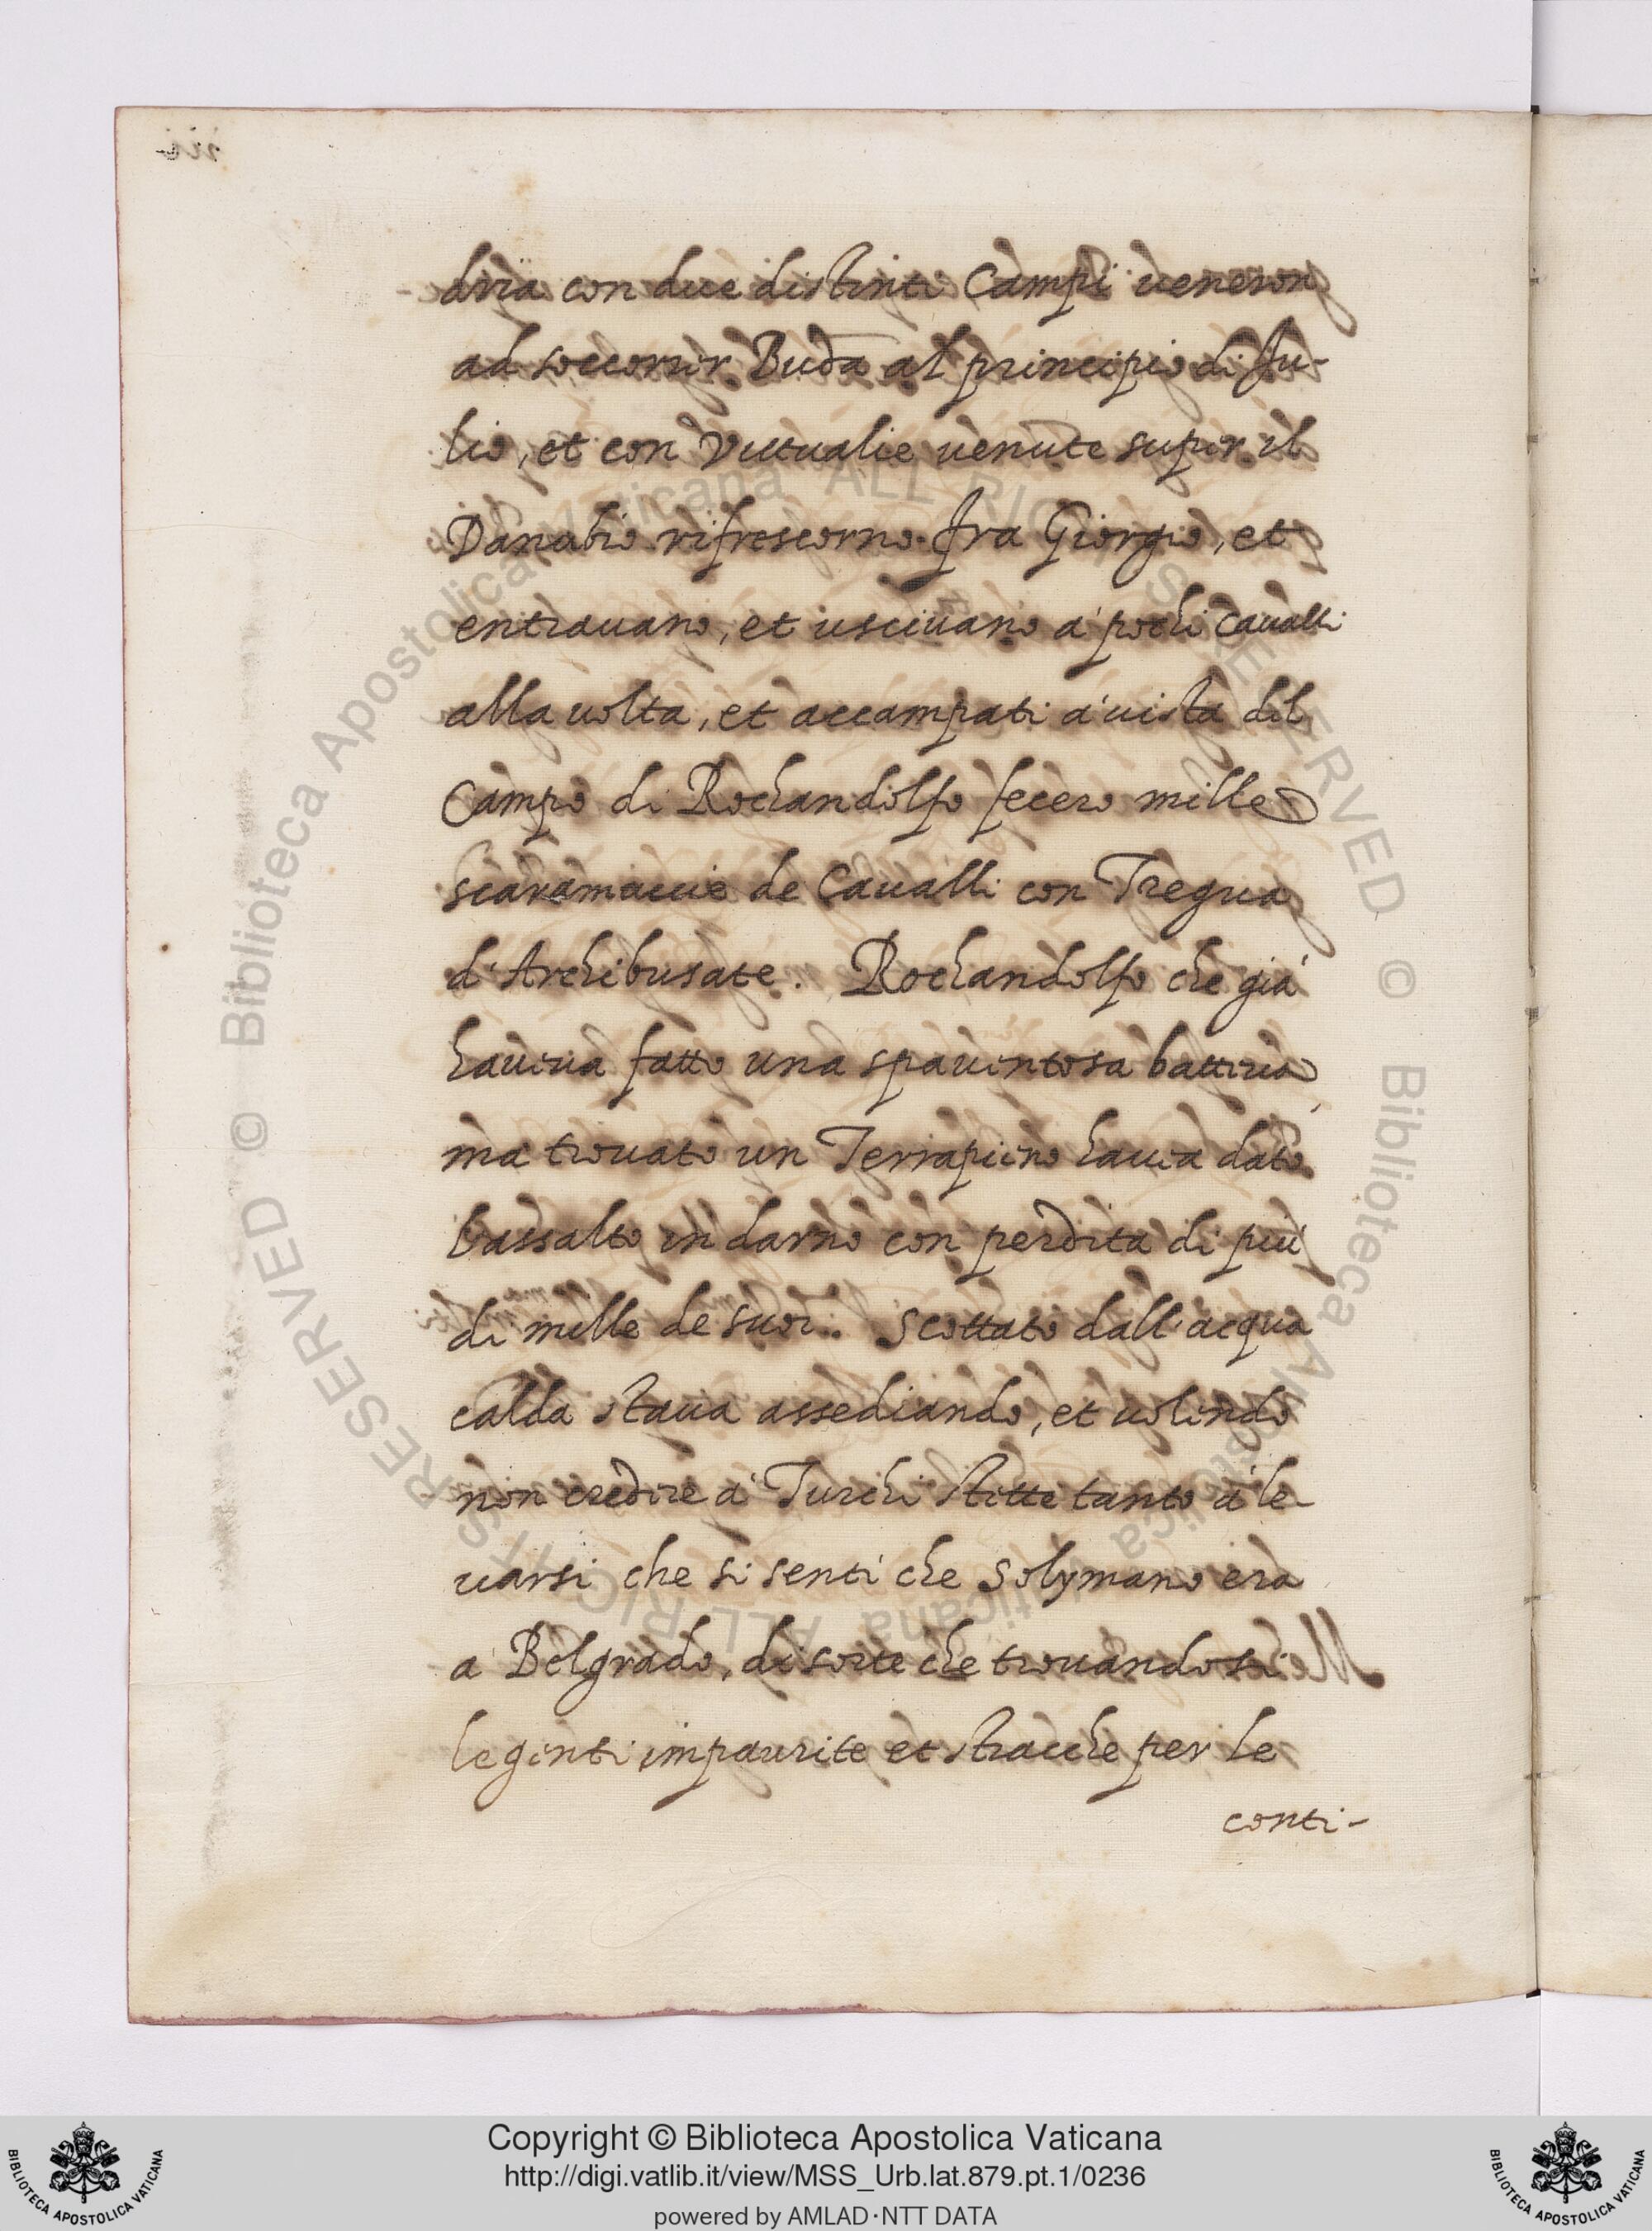 dria con due distinti Campi veneron
ad soccorrer Buda al principio di Ju-
lio, et con Vittualie venute super il
Danubio rifrescorno fra Giorgio, et
entravano, et uscivano a pochi Cavalli
alla volta, et accampati a' vista del
Campo di Rochandolfo fecero mille
scaramuccie de Cavalli con Tregua
d'Archibusate. Rochandolfo che già
haveva fatto una spaventosa batteria
ma trovato un Terrapieno havea dato
l'assalto in darno con perdita di più
di mille de suoi. Scottato dall'acqua
calda stava assediando, et volendo
non credere a' Turchi stette tanto a' le-
varsi che si sentì che Solymano era
a Belgrado, di sorte che trovandosi
le genti impaurite et stracche per le
conti-
© Biblioteca Apostolica Vaticana ALL RIGHTS RESERVED © Biblioteca Apostolica Vaticana ALL RIGHTS RESERVED
Copyright © Biblioteca Apostolica Vaticana
http://digi.vatlib.it/view/MSS_Urb.lat.879.pt.1/0236
powered by AMLAD·NTT DATA
BIBLIOTECA APOSTOLICA VATICANA
BIBLIOTECA APOSTOLICA VATICANA